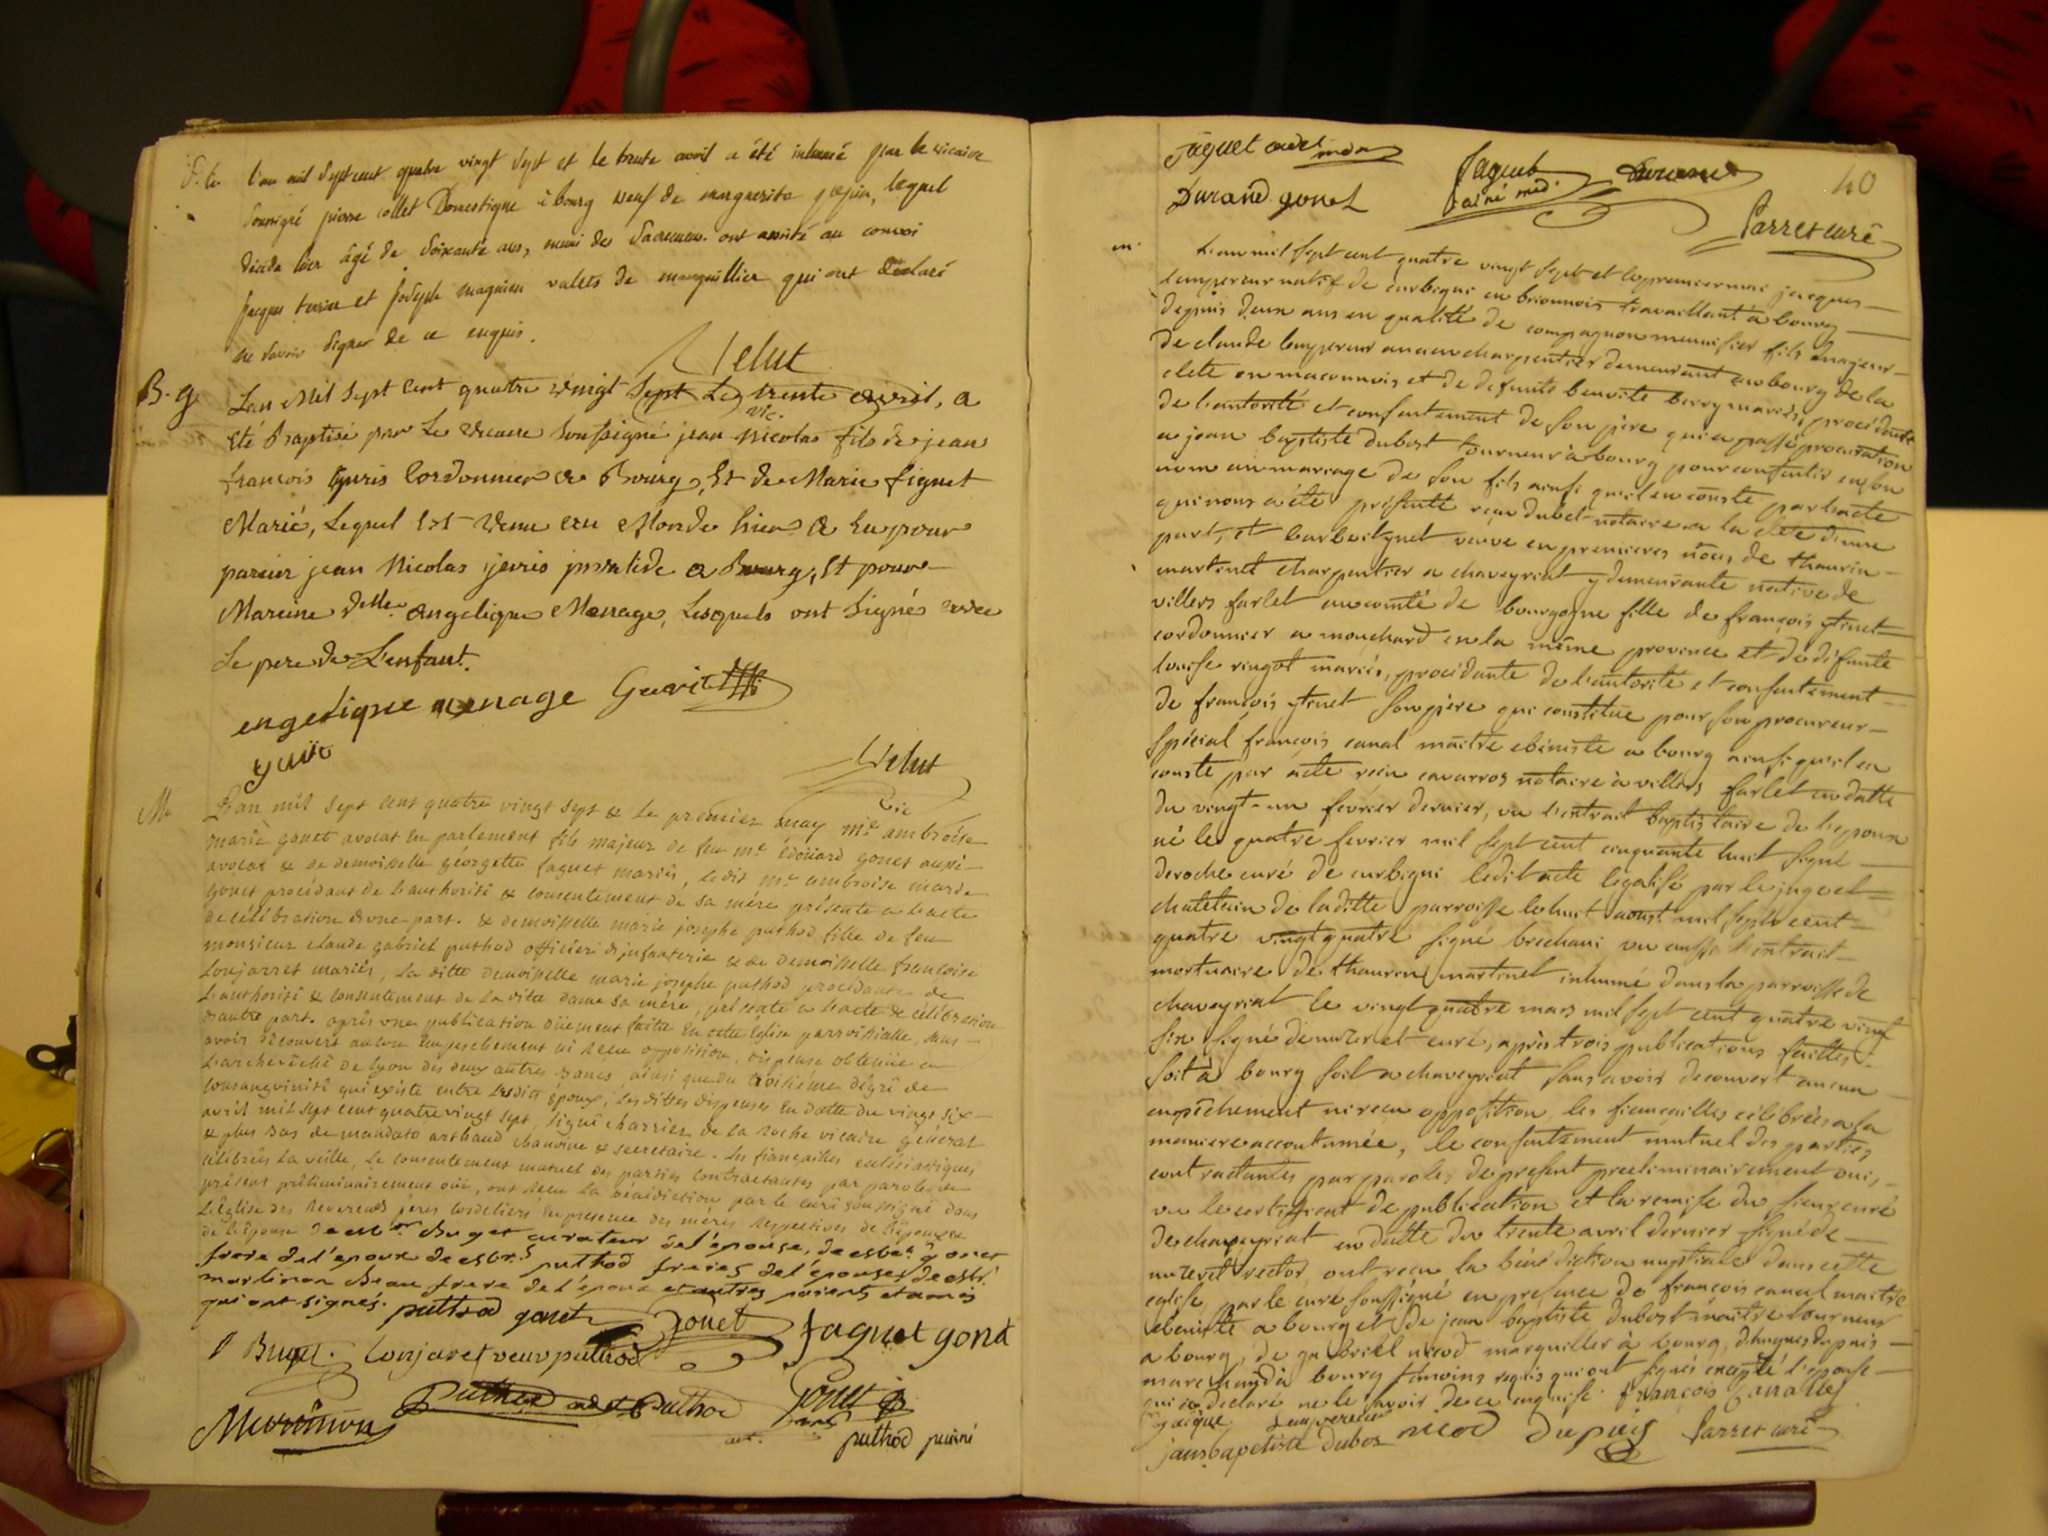 L'an mil sept cent quatre vingt sept et le trente avril a été inhumé par le vicaire
soussigné pierre collet Domestique à bourg veuf de marguerite lequel
décédé hier âgé de soixante ans, muni des Sacremens. ont assisté au convoi
jacques et joseph magnien valets de marguillier qui ont déclaré
ne savoir signer de ce enquis.
Velut
vic.
B. g.
Lan Mil Sept Cent quatre vingt Sept Le trente avril, a
Eté Baptisé par Le vicaire Soussigné jean Nicolas fils de jean
françois Cordonnier a Bourg, Et de Marie figuet
Marié, Lequel Est venu au Monde hier a Eu pour
parein jean Nicolas invalide a Bourg, Et pour
Mareine Delle angelique Menage, Lesquels ont Signé avec
Le pere de L'enfant.
engelique menage
Velut
vic
M
L'an mil sept cent quatre vingt sept & le premier may mr ambroise
marie gonet avocat en parlement fils majeur de feu mr édoüard gonet aussi
avocat & de demoiselle géorgette faguet mariés, ledit mr ambroise marie
gonet procédant de l'authorité & consentement de sa mére présente a l'acte
de célébration d'une part. & demoiselle marie josephe puthod fille de feu
monsieur claude gabriel puthod officier d'infanterie & de demoiselle françoise
Conjarret mariés, la ditte demoiselle marie josephe puthod procédante de
l'authorité & consentement de la ditte dame sa mére, présente a l'acte de célébration
d'autre part. après une publication düement faitte en cette église parroissialle, sans
avoir découvert aucun empeschement ni reçu opposition, dispense obtenüe a
l'archevêché de lyon des deux autres bancs, ainsi que du troisième dégré de
consanguinité qui existe entre lesdits époux, les dittes dispenses en datte du vingt six
avril mil sept cent quatre vingt sept, signé charrier de la roche vicaire général
& plus bas de mandato arthaud chanoine & secretaire. les fiançailles ecclésiastiques
célébrées la veille, le consentement mutuel des parties contractantes par paroles de
présent préliminairement oüi, ont reçu la bénédiction par le curé soussigné dans
l'église des Reverends péres cordeliers en presence des méres respectives de l'époux &
de l'épouse de Buget curateur de l'épouse, de gonet
frere de l'epoux de puthod freres de l'épouse, de
martinon Beau frere de l'époux et autres parents et amis
qui ont signés. puthod gonet gonet faguet gonet
Buget. Conjaret veuve puthod
Puthod cadet Puthod gonet
Martinon puthod puiné
faguet cadet med faguet ainé med. Durand
40
Durand gonet
Parret curé
m.
L'an mil sept cent quatre vingt sept et le premier mai jacques
Lempereur natif de curbigni en brionnois travaillant à bourg
depuis deux ans en qualité de compagnon menuisier fils majeur
de claude lempereur ancien charpentier demeurant au bourg de la
clete en maconnois et de defunte benoite berry mariés, procédant
de l'autorité et consentement de son père qui a passé procuration
a jean baptiste dubost tourneur à bourg pour consentir en son
nom au mariage de son fils ainsi qu'il en conste par l'acte
qui nous a été présenté reçu dubet notaire a la clete d'une
part, et barbe veuve en premieres nôces de thaurin
martinet charpentier a chaveyriat y demeurante native de
villers farlet au comté de bourgogne fille de françois
cordonnier a mouchard en la même province et de defunte
louise ringot mariés, procédante de l'autorité et consentement
de françois son père qui constitue pour son procureur
spécial françois canal maître ebéniste a bourg ainsi qu'il en
conste par acte reçu cavarroz notaire à villers farlet en datte
du vingt-un fevrier dernier, vu l'extrait baptistaire de l'epoux
né le quatre fevrier mil sept cent cinquante huit signé
deroche curé de curbigni ledit acte légalisé par le juge et
chatelain de laditte parroisse le huit aoust mil sept cent
quatre vingt quatre signé brechani vu aussi l'extrait
mortuaire de thaurin martinet inhumé dans la parroisse de
chaveyriat le vingt quatre mars mil sept cent quatre vingt
six signé demuzeret curé, après trois publications faittes
soit à bourg soit a chaveyriat sans avoir decouvert aucun
empêchement ni reçu opposition, les fiançailles célébrées a la
maniere accoutumée, le consentement mutuel des parties
contractantes par paroles de présent preeliminairement oui,
vu le certificat de publication et la remise du sieur curé
de chaveyriat en datte du trente avril dernier signé de
muzeret rector, ont reçu la bénédiction nuptiale dans cette
eglise par le curé soussigné en presence de françois canal maitre
ebeniste a bourg et de jean baptiste dubost maitre tourneur
a bourg, de gabriel nicod marguiller à bourg, d'hugues dupuis
marchand à bourg témoins requis qui ont signés excepté l'epouse
qui a declaré ne le savoir de ce enquise. françois canalle
jacque Lempereur
jeanbaptiste dubos nicod Dupuis Parret curé